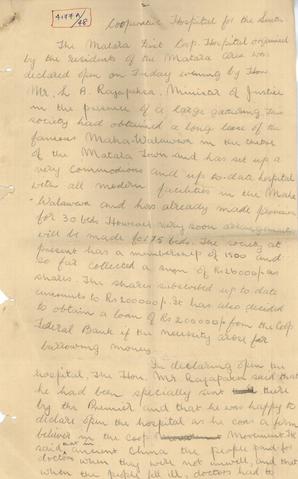 4177A/48
Cooperative Hospital for the
The Matara First Coop. Hospital organised
by the residents of the Matara area was
declared open on Friday evening by Hon
Mr. L. A. Rajapaksa, Minister of Justice
in the presence of a large gathering. The
society had obtained a long lease of the
famous Maha Walawwa in the centre
of the Matara Town and has set up a
very commodious and up-to-date hospital
with all modern facilities in the Maha
Walawwa and has already made provision
for 30 beds. However very soon arrangements
will be made for 75 beds. The society at
present has a membership of 1500 and
so far collected a sum of Rs 26000 as
shares. The shares subscribed up to date
amounts to Rs 200000. It has also decided
to obtain a loan of Rs 200000 from the Coop
Federal Bank if the necessity arose for
borrowing money.
In declaring open the
hospital, the Hon. Mr Rajapaksa said that
he had been specially sent there
by the Premier and that he was happy to
declare open the hospital as he was a firm
believer in the Coop Movement. He
said, in ancient China the people paid for
doctors when they were not unwell, and that
when the people fell ill, doctors had to